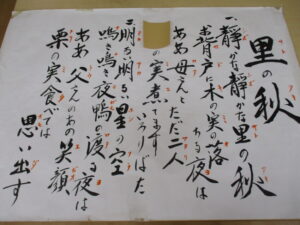 里の秋
一、静かな静かな里の秋
お背戸に木の実の落ちる夜は
ああ母さんとただ二人
の実煮てます いろりばた
二、明るい明るい星の空
鳴き鳴き夜鴨の渡る夜は
ああ父さんのあの笑顔
栗の実食べては
思い出す